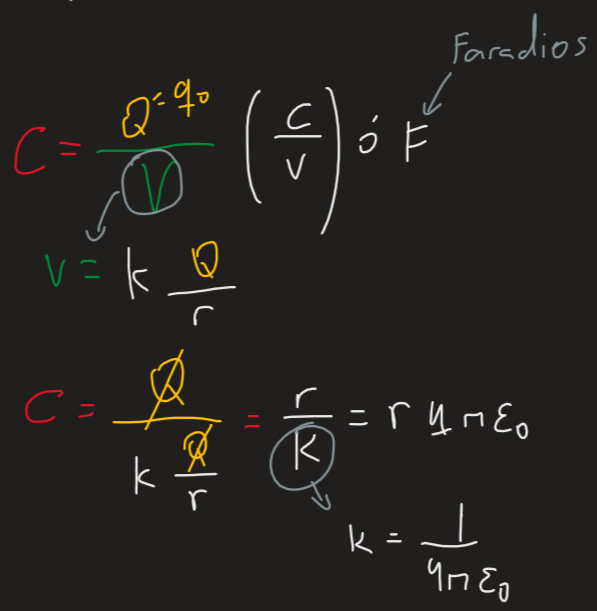 Faradios
C = Q=q₀ / V (C / V) ó F
V = k Q / r
C = Q / k Q / r = r / k = r 4πε₀
k = 1 / 4πε₀